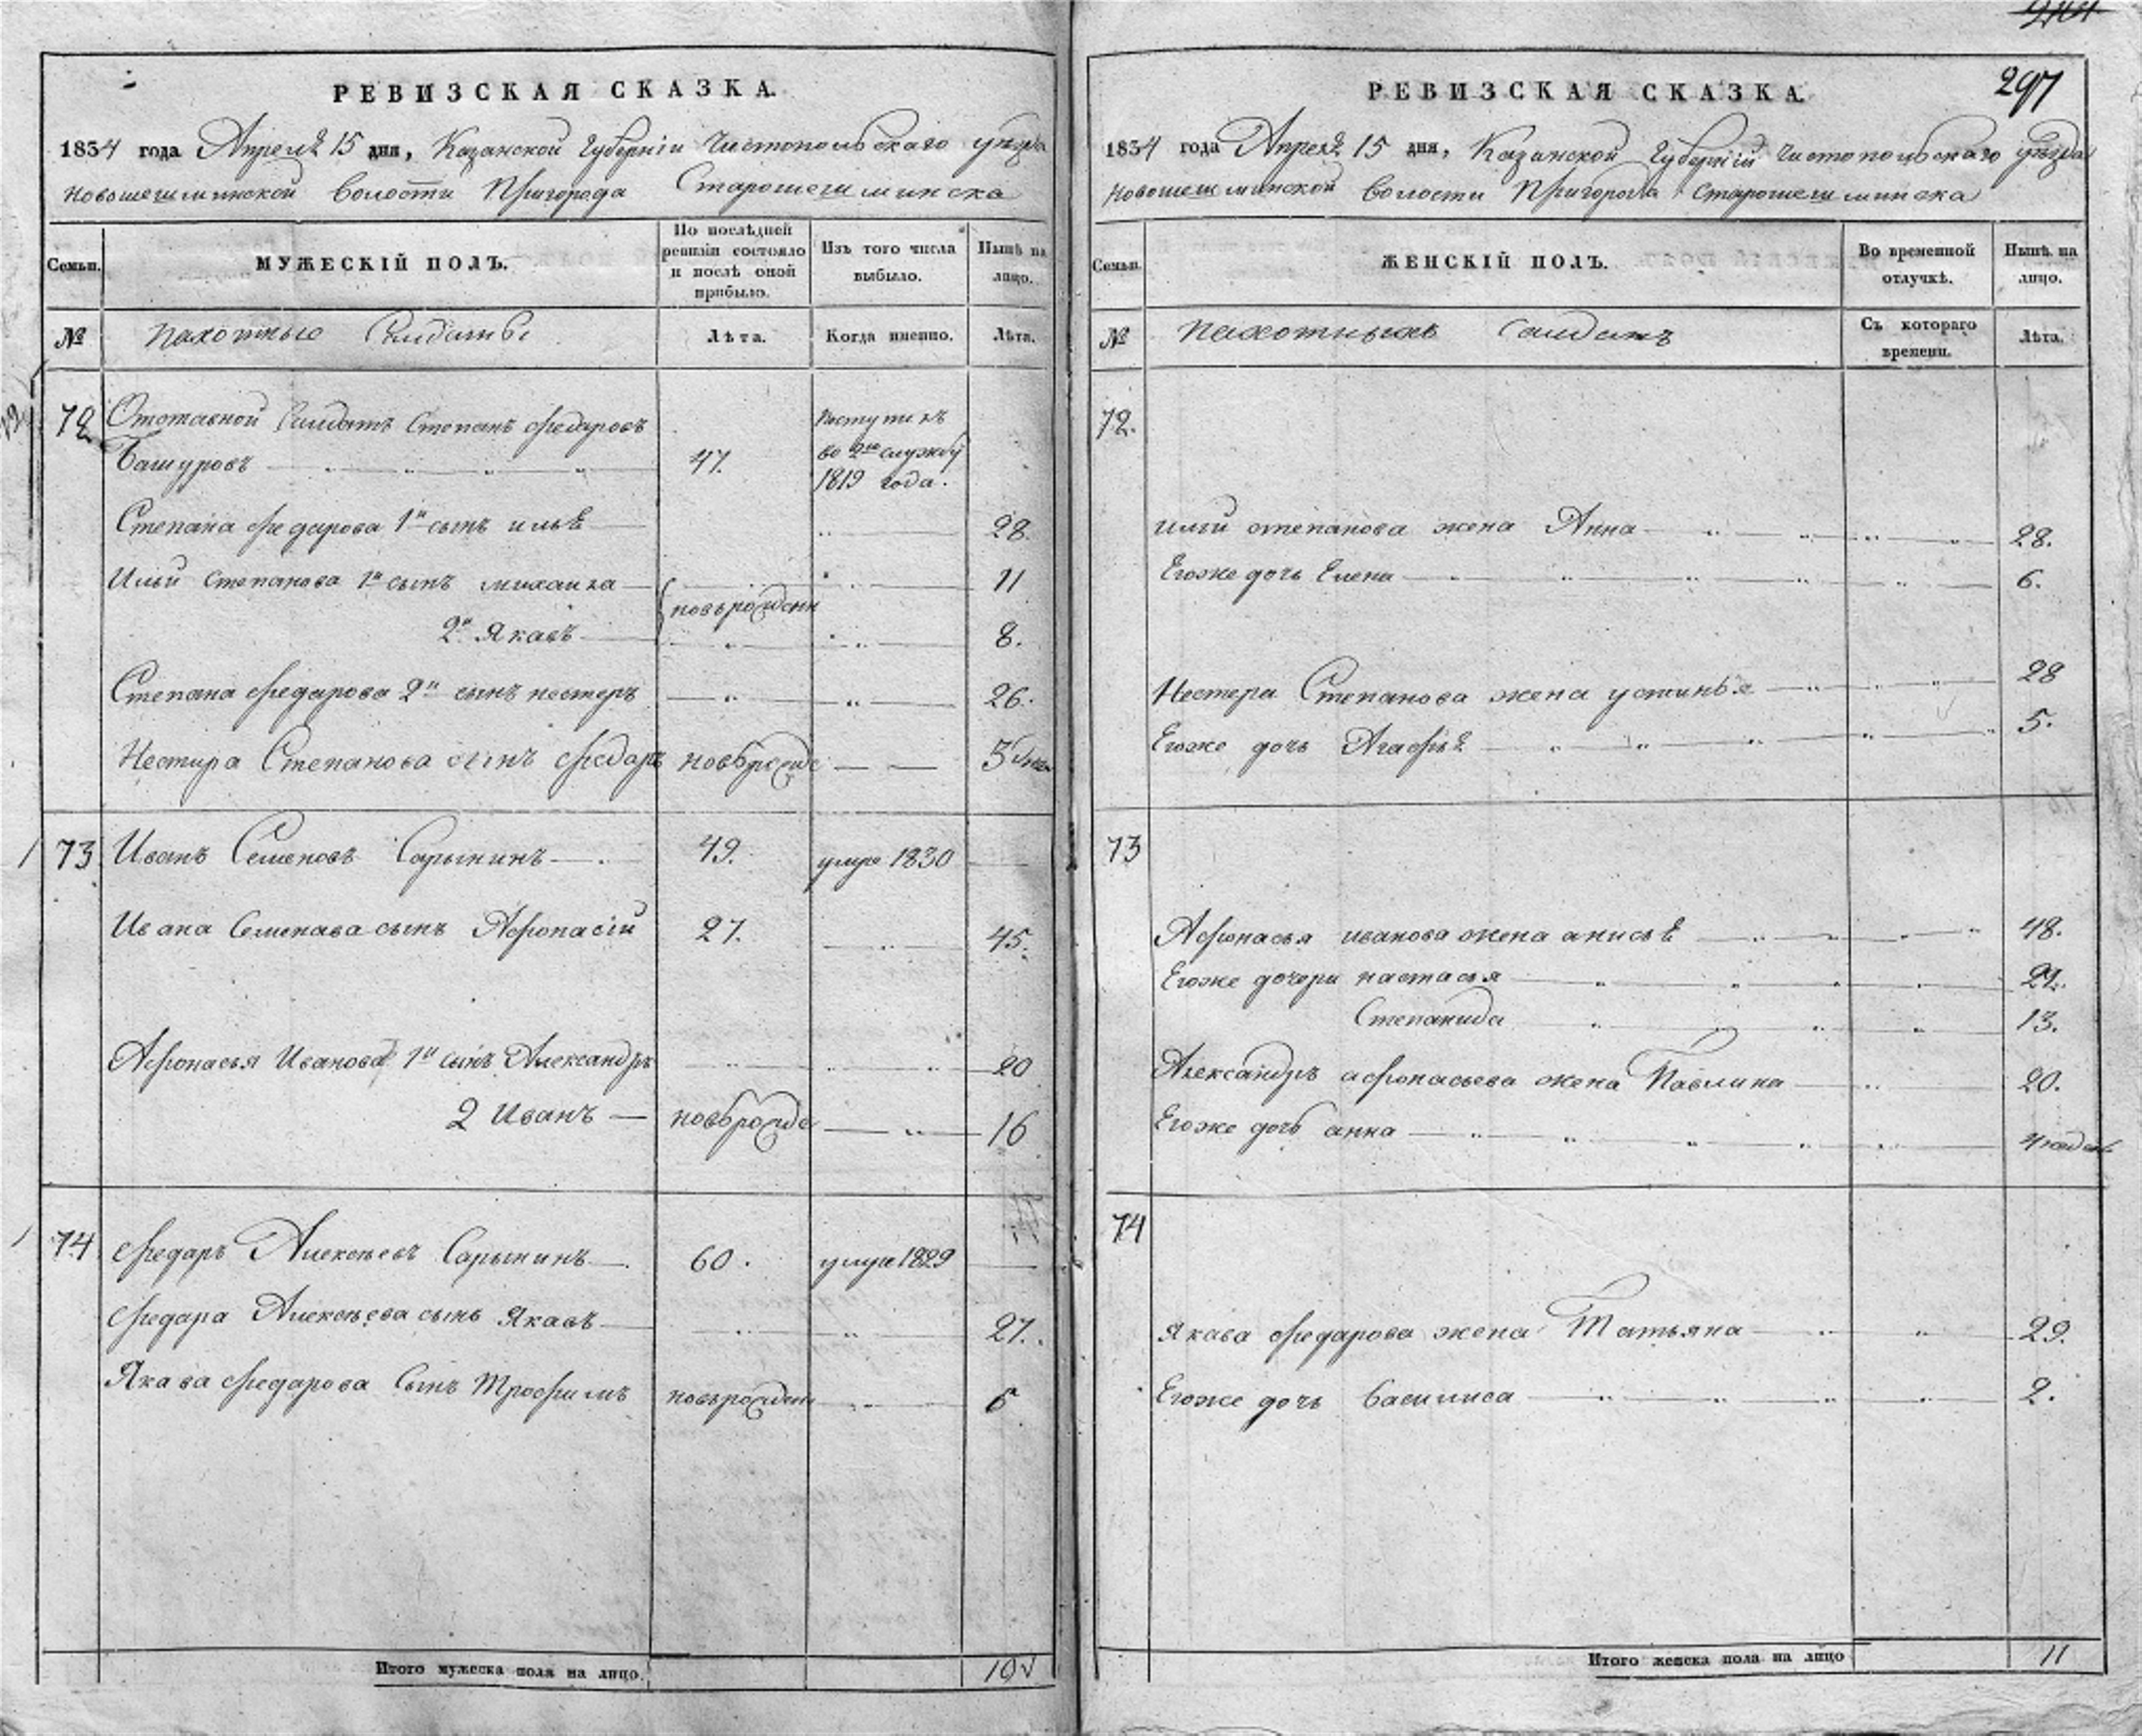 РЕВИЗСКАЯ СКАЗКА.
1834 года Апреля 15 дня, Казанской Губернiи Чистопольскаго уѣзда
Новошешминской волости Пригорода Старошешминска
Семьи.
МУЖЕСКIЙ ПОЛЪ.
По послѣдней ревизiи состояло и послѣ оной прибыло.
Изъ того числа выбыло.
Нынѣ на лицо.
№
Пахотные Салдаты
Лѣта.
Когда именно.
Лѣта.
72
Отставной Салдатъ Степанъ Федаровъ
Башуровъ
47.
Поступилъ
во 2ю службу
1819 года.
Степана Федарова 1й сынъ илья
28.
Ильи Степанова 1й сынъ михаила
11
новърожденн
2й Якавъ
8.
Степана Федарова 2й сынъ нестеръ
26.
Нестира Степанова сынъ Федаръ новърожде
3
1
73
Иванъ Семеновъ Сарынинъ
49.
умре 1830
Ивана Семенава сынъ Афонасiй
27.
45.
Афонасья Иванова 1й сынъ Александръ
20
2 Иванъ
новърожде
16
74
Федаръ Алексѣевъ Сарынинъ
60.
умре 1829
Федара Алексѣева сынъ Якавъ
27.
Якава Федарова Сынъ Трофимъ
новърожден
6
Итого мужеска пола на лицо.
10
297
РЕВИЗСКАЯ СКАЗКА.
1834 года Апреля 15 дня, Казанской Губернiй Чистопольскаго уѣзда
Новошешминской волости Пригорода Старошешминска
Семьи.
ЖЕНСКIЙ ПОЛЪ.
Во временной отлучкѣ.
Нынѣ на лицо.
№
Пахотныхъ Салдатъ
Съ котораго времени.
Лѣта.
72.
Ильи степанова жена Анна
28.
Егоже дочь Елена
6.
Нестера Степанова жена устинья
28
Егоже дочь Агафья
5.
73
Афонасья иванова жена анисья
48.
Егоже дочери настасья
21.
Степанида
13.
Александръ афонасьева жена Павлина
20.
Егоже дочь анна
4 недель
74
Якава Федарова жена Татьяна
29.
Егоже дочь Василиса
2.
Итого женска пола на лицо
11